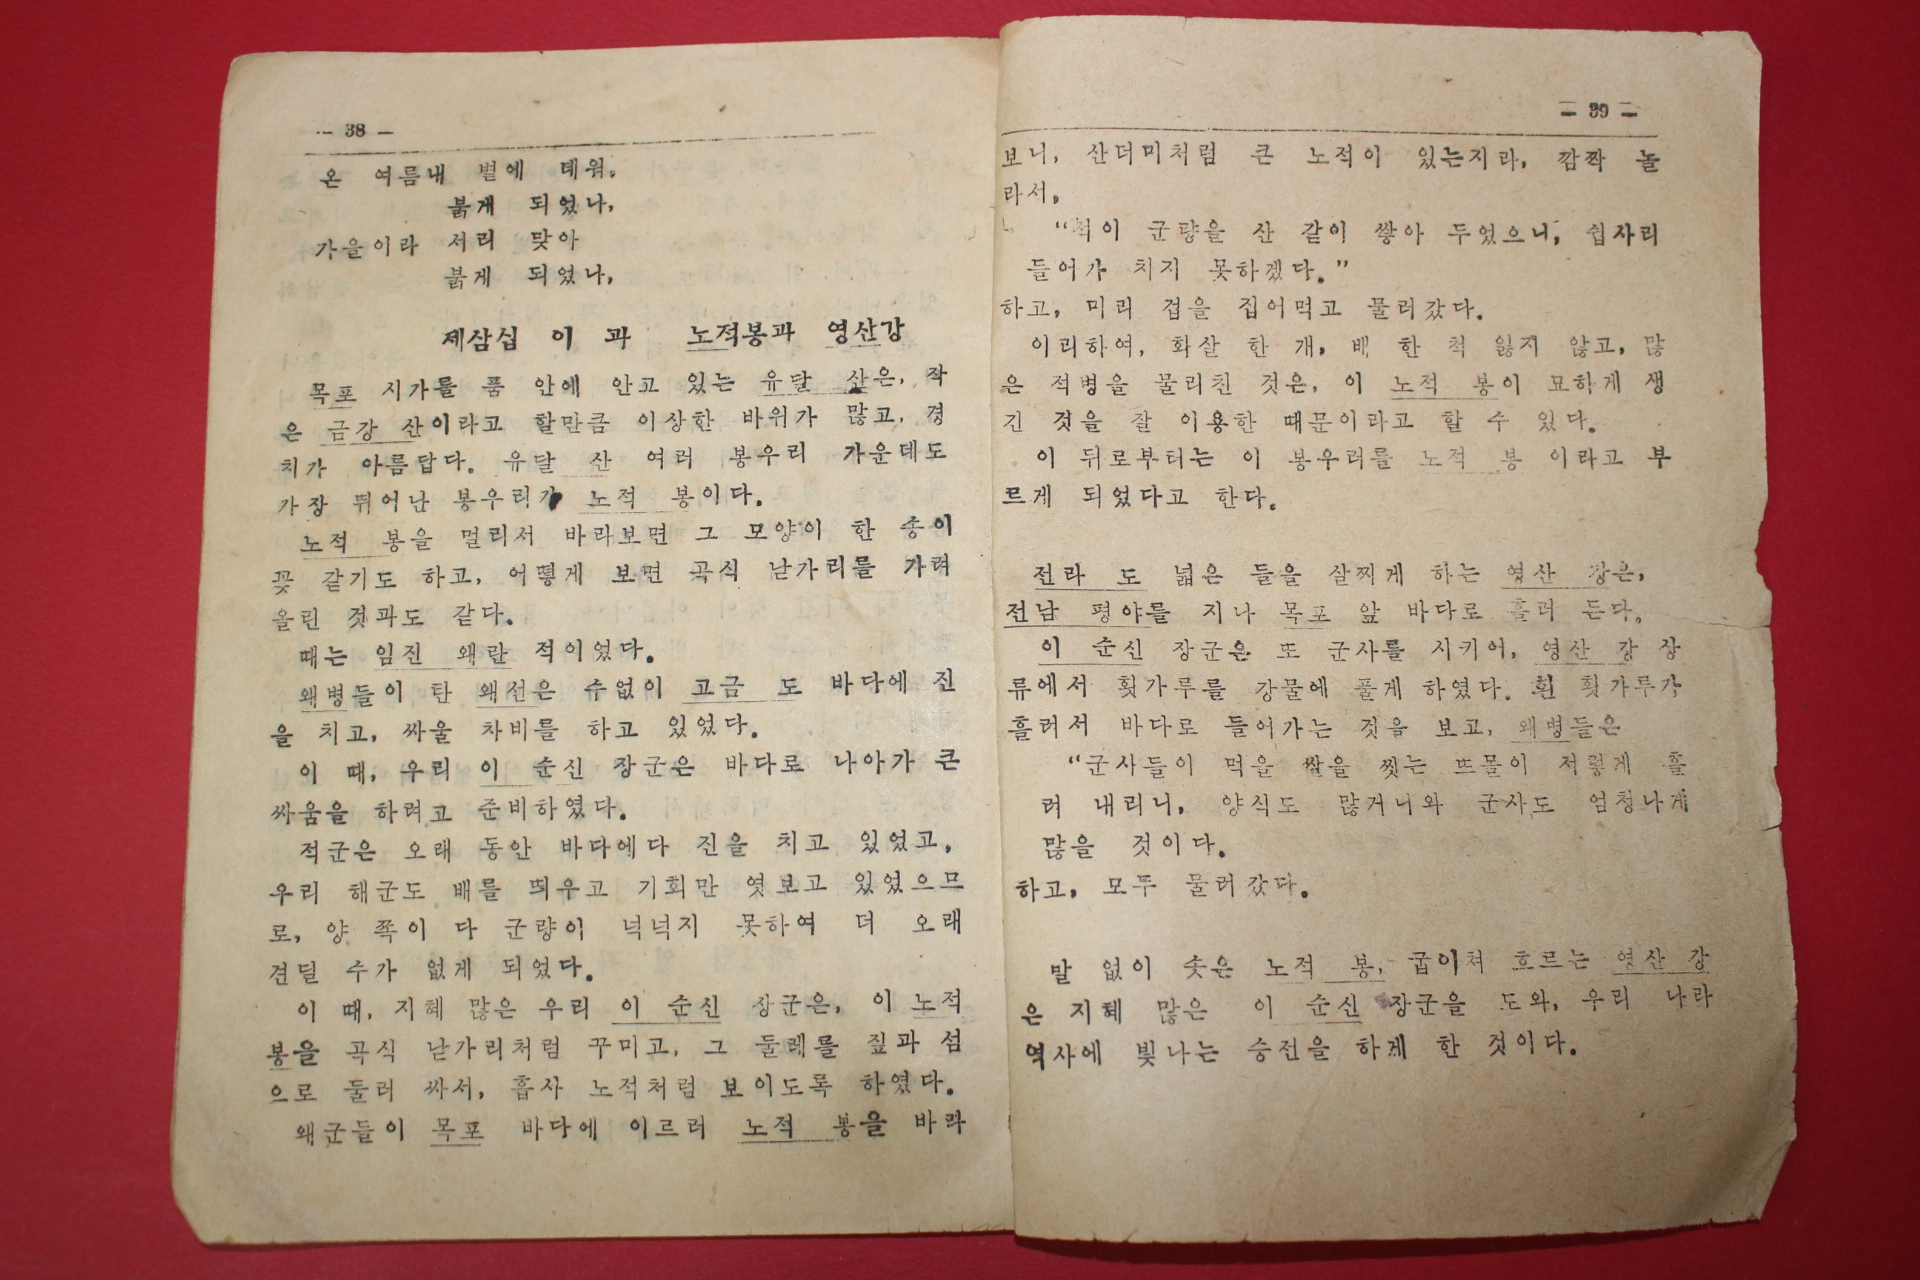 — 38 —
온 여름내 볕에 데워,
붉게 되었나,
가을이라 서리 맞아
붉게 되었나,
제삼십 이 과 노적봉과 영산강
목포 시가를 품 안에 안고 있는 유달 산은, 작
은 금강 산이라고 할만큼 이상한 바위가 많고, 경
치가 아름답다. 유달 산 여러 봉우리 가운데도
가장 뛰어난 봉우리가 노적 봉이다.
노적 봉을 멀리서 바라보면 그 모양이 한 송이
꽃 같기도 하고, 어떻게 보면 곡식 낟가리를 가려
올린 것과도 같다.
때는 임진 왜란 적이었다.
왜병들이 탄 왜선은 수없이 고금 도 바다에 진
을 치고, 싸울 차비를 하고 있었다.
이 때, 우리 이 순신 장군은 바다로 나아가 큰
싸움을 하려고 준비하였다.
적군은 오래 동안 바다에다 진을 치고 있었고,
우리 해군도 배를 띄우고 기회만 엿보고 있었으므
로, 양 쪽이 다 군량이 넉넉지 못하여 더 오래
견딜 수가 없게 되었다.
이 때, 지혜 많은 우리 이 순신 장군은, 이 노적
봉을 곡식 낟가리처럼 꾸미고, 그 둘레를 짚과 섬
으로 둘러 싸서, 흡사 노적처럼 보이도록 하였다.
왜군들이 목포 바다에 이르러 노적 봉을 바라
— 39 —
보니, 산더미처럼 큰 노적이 있는지라, 깜짝 놀
라서,
“적이 군량을 산 같이 쌓아 두었으니, 쉽사리
들어가 치지 못하겠다.”
하고, 미리 겁을 집어먹고 물러갔다.
이리하여, 화살 한 개, 배 한 척 잃지 않고, 많
은 적병을 물리친 것은, 이 노적 봉이 묘하게 생
긴 것을 잘 이용한 때문이라고 할 수 있다.
이 뒤로부터는 이 봉우리를 노적 봉 이라고 부
르게 되었다고 한다.
전라 도 넓은 들을 살찌게 하는 영산 강은,
전남 평야를 지나 목포 앞 바다로 흘러 든다.
이 순신 장군은 또 군사를 시키어, 영산 강 상
류에서 횟가루를 강물에 풀게 하였다. 흰 횟가루가
흘러서 바다로 들어가는 것을 보고, 왜병들은
“군사들이 먹을 쌀을 씻는 뜨물이 저렇게 흘
러 내리니, 양식도 많거니와 군사도 엄청나게
많을 것이다.
하고, 모두 물러갔다.
말 없이 솟은 노적 봉, 굽이쳐 흐르는 영산 강
은 지혜 많은 이 순신 장군을 도와, 우리 나라
역사에 빛나는 승전을 하게 한 것이다.